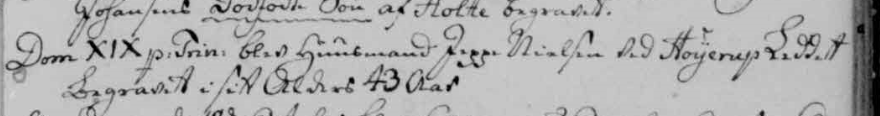 Johansens Dødfødte Søn af Holte begravet.
Dom XIX p: Trin: blev Huusmand Jeppe Nielsen ved Høÿerup Leddet
begravet i sit Alders 43 Aar